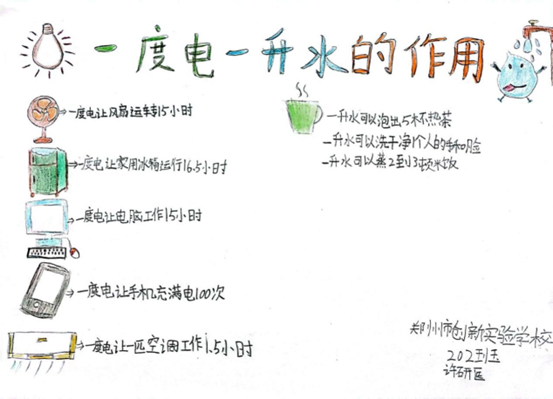 一度电一升水的作用
一度电让风扇运转15小时
一度电让家用冰箱运行16.5小时
一度电让电脑工作15小时
一度电让手机充满电100次
一度电让一匹空调工作1.5小时
一升水可以泡出5杯热茶
一升水可以洗干净1个人的手和脸
一升水可以蒸2到3顿米饭
郑州市创新实验学校
202班
许研